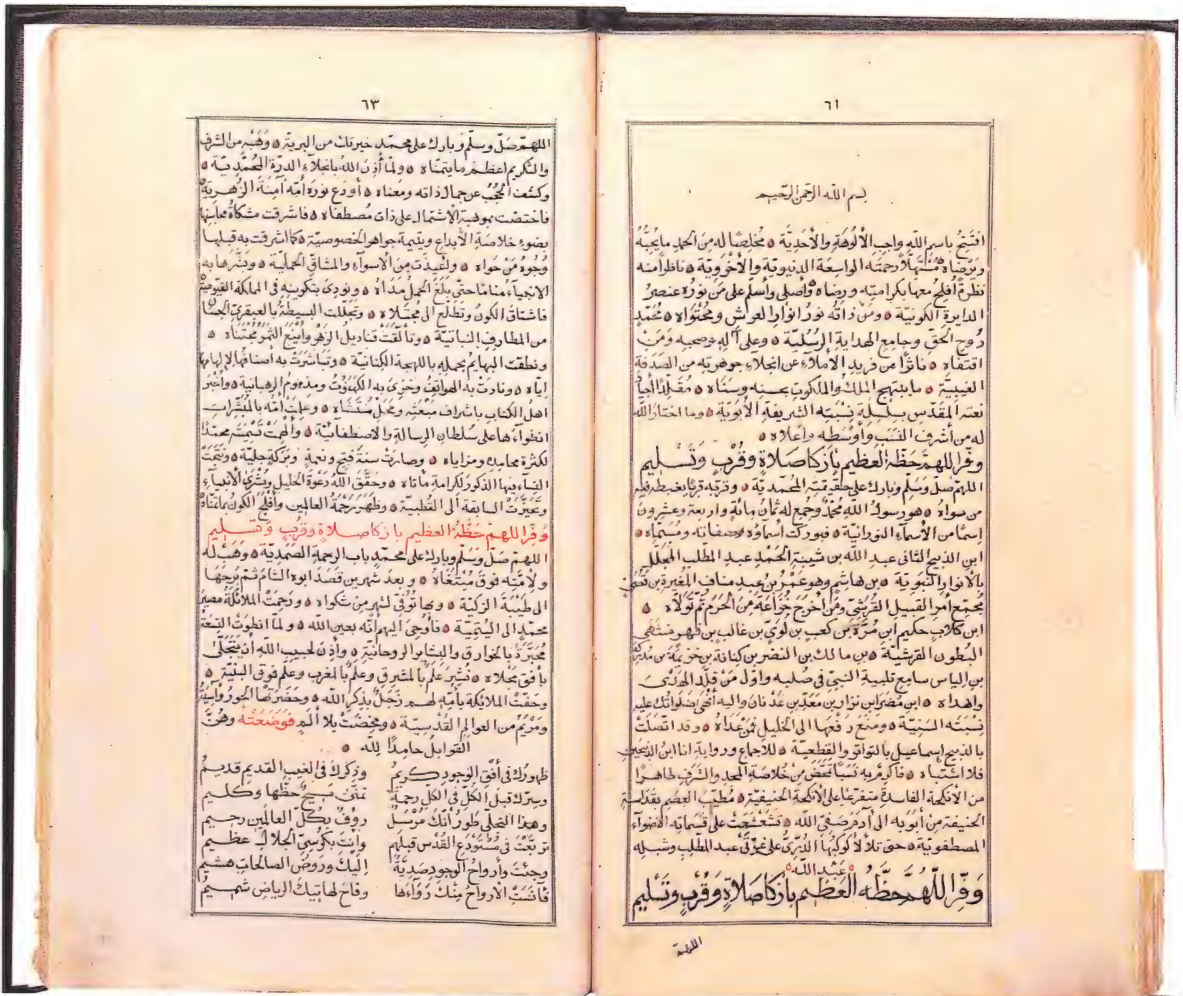 ٦١
بسم الله الرحمن الرحيم
افتتح باسم الله واجب الألوهة والأحدية ٥ مخلصا له من الحمد ما يحبه
ويرضاه ٥ مستهلا رحمته الواسعة الدنيوية والأخروية ٥ ناظرا منه
نظرة أفلح معها بكراميه ورضاه ٥ وأصلي وأسلم على من نوره عنصر
الدايرة الكونية ٥ ومن ذاته نور انوار العرش ومحتواه ٥ محمد
روح الحق وجامع الهداية الرسلية ٥ وعلى آله وصحبه ومن
اقتفاه ٥ ناثرا من فريد الاملاء عن انجلاء جوهريته من الصدفة
الغيبية ٥ ما يبتهج الملك والملكوت بحسنه وسناه ٥ مقلدا
نعته المقدس بسلسلة نسبته الشريفة الأبوية ٥ وما اختار الله
له من أشرف النسب وأوسطه واعلاه ٥
وفر اللهم حظه العظيم بازكا صلاة وقرب وتسليم
اللهم صل وسلم وبارك على حقيقته المحمدية ٥ وقربه قربا يغبطه فيه
من سواه ٥ هو رسول الله محمد وجمع له ثمان مائة واربعة وعشرون
إسما من الأسماء النورانية ٥ فبوركت أسماؤه وصفاته ومسماه ٥
ابن الذبيح الثاني عبد الله بن شيبة الحمد عبد المطلب المجلل
بالأنوار النبوية ٥ بن هاشم وهو عمرو بن عبد مناف المغيرة بن قصي
مجمع أمر القبيل القرشي ومن أخرج خزاعة من الحرم ثم تولاه ٥
ابن كلاب حكيم ابن مرة بن كعب بن لوي بن غالب بن فهر منتهى
البطون القرشية ٥ بن مالك بن النضر بن كنانة بن خزيمة بن مدركة
بن إلياس سامع تلبية النبي في صلبه واول من قلد الهدى
واهداه ٥ ابن مضر ابن نزار بن معد بن عدنان واليه أنهى صلواتك عليه
نسبته السنية ٥ ومنع رفعها الى الخليل فمن عداه ٥ وقد اتصلت
بالذبيح إسماعيل بالتواتر والقطعية ٥ للاجماع ورواية انا ابن الذبيحين
فلا اشتباه ٥ فاكرم به نسبا تمخض من خلاصة المجد والشرف طاهرا
من الأنكحة الفاسدة متفرعا على الأنكحة الحنيفية ٥ مطيب العصم بقداسة
الحنيفة من أبويه الى آدم صفي الله ٥ تشعشعت على قسماته الاضواء
المصطفوية ٥ حتى تلألأ كوكبها الدري على غرتي عبد المطلب وشبله
عبد الله ٥
وفر اللهم حظه العظيم بازكا صلاة وقرب وتسليم
اللهم
٦٣
اللهم صل وسلم وبارك على محمد خيرتك من البرية ٥ وهبه من الشرف
والتكريم اعظم ما يتمناه ٥ ولما أذن الله بانجلاء الدرة المحمدية ٥
وكشف الحجب عن جمال ذاته ومعناه ٥ أودع نوره أمه آمنة الزهرية ٥
فاختصت بموهبة الإشتمال على ذات مصطفاه ٥ فاشرقت مشكاة محاسنها
بضوء خلاصة الأبداع ويتيمة جواهر الخصوصية ٥ كما اشرقت به قبلها
وجوه من حواه ٥ واعيذت من الاسوآء والمشاق الحملية ٥ وبشرها به
الانبياء مناما حتى بلغ الحمل مداه ٥ ونودي بتكوينه في المملكة القيومية
فاشتاق الكون وتطلع الى مجتلاه ٥ وتجللت البسيطة بالعبقري الحسان
من المطارف النباتية ٥ وتألقت قناديل الزهر وأينع الثمر مجتناه ٥
ونطقت البهايم بحمله باللهجة الكنانية ٥ وتباشرت به اصنافها لإلهامها
اياه ٥ ونادت به الهواتف وخزي به الكهنوت ومذموم الرهبانية ٥ وأخبر
اهل الكتاب باشراف مبعثه ومحل منتشاه ٥ وعلمت أمه بالمبشرات
انطوآءها على سلطان الرسالة والاصطفائية ٥ وألهمت تسميته محمدا
لكثرة محامده ومزاياه ٥ وصارت سنة فتح ونعمة وبركة جلية ٥ ونتجت
النساء فيها الذكور لكرامة ماتاه ٥ وحقق الله دعوة الخليل وبشرى الأنبياء
وتحيزت السابقة الى القطبية ٥ وظهر رحمة العالمين وأفلح الكون بما تمناه
وفر اللهم حظه العظيم بازكا صلاة وقرب وتسليم
اللهم صل وسلم وبارك على محمد باب الرحمة الصمدية ٥ وهب له
ولأمته فوق مبتغاه ٥ وبعد شهرين قصد ابوه الشام ثم برحها
الى طيبة الزكية ٥ وبها توفي لشهر من شكواه ٥ ورحمت الملائكة مصير
محمد الى اليتمية ٥ فأوحى اليهم أنه بعين الله ٥ ولما انطوت التسعة
محبرة بالخوارق والبشاير الروحانية ٥ وأذن لحبيب الله أن يتجلى
بأفق مجلاه ٥ نشر علم بالمشرق وعلم بالمغرب وعلم فوق البنية ٥
وحفت الملائكة بأمه لهم زجل بذكر الله ٥ وحضرتها الحور وآسية
ومريم من العوالم القدسية ٥ ومخضت بلا ألم فوضعته وهوت
القوابل حامدا لله ٥
ظهورك في أفق الوجود كريم وذكرك في الغيب القديم قديم
وسرك قبل الكل في الكل رحمة تمنى مسيح حظها وكليم
وهذا التجلي طور أنك مرسل رؤوف بكل العالمين رحيم
تربعت في مستودع القدس قبلهم وأنت بكرسي الجلال عظيم
وجئت وأرواح الوجود صدية إليك وروض الصالحات هشيم
فأنست الأرواح منك رواءها وفاح لهاتيك الرياض شميم